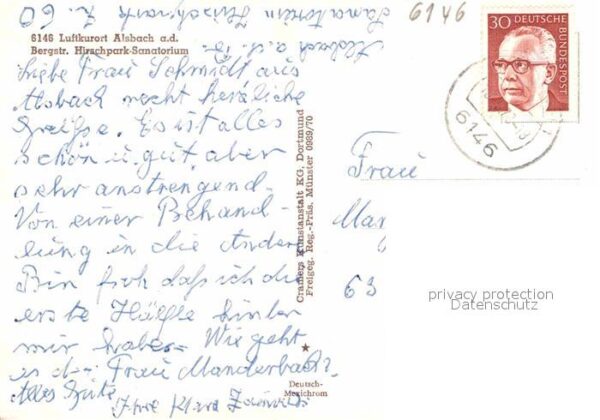 6146 Luftkurort Alsbach a.d.
Bergstr. Hirschpark-Sanatorium
Alsbach a. d. B.
Sanatorium Hirschpark
Z. 60
Liebe Frau Schmidt aus
Alsbach recht herzliche
Grüße. Es ist alles
schön u. gut, aber
sehr anstrengend.
Von einer Behand-
lung in die Andere
Bin froh daß ich die
erste Hälfte hinter
mir habe. Wie geht
es d. Frau Manderbach?
Alles Gute
Ihre Klara
Cramers Kunstanstalt KG, Dortmund
Freigeg. Reg.-Präs. Münster 0989/70
Deutsch-
Mexichrom
6146
30 DEUTSCHE
BUNDESPOST
6146
Frau
Mar
63
privacy protection
Datenschutz